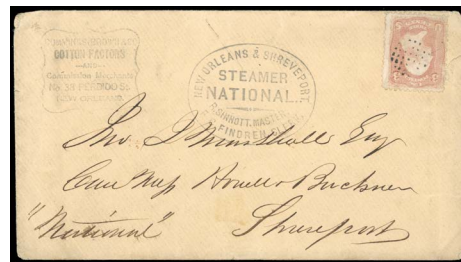 COTTON FACTORS
AND
Commission Merchants
No 38 PERDIDO St
NEW ORLEANS
NEW ORLEANS & SHREVEPORT
STEAMER
NATIONAL.
P. SINNOTT. MASTER
FINDREN CLERK
3 3
Jno. J Marshall Esq
Care Mess Howell & Buckner
"National" Shreveport